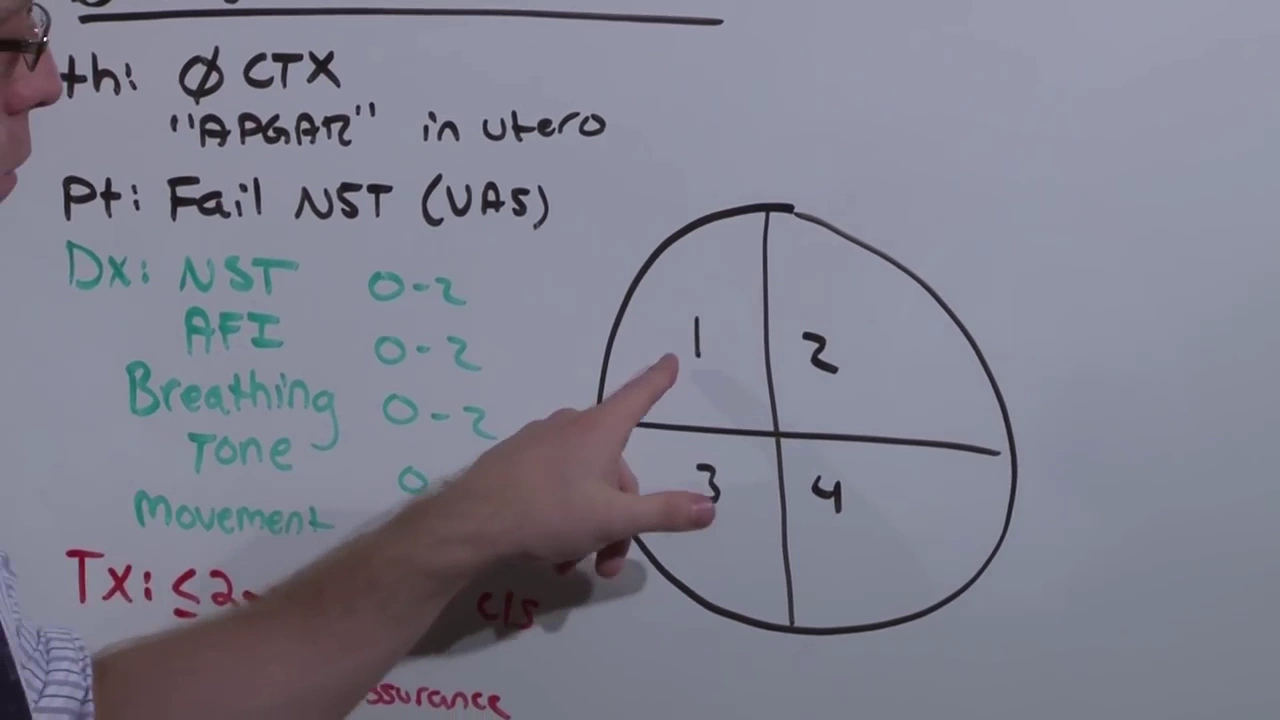 th: Ø CTX
"APGAR" in utero
Pt: Fail NST (VAS)
Dx: NST 0-2
AFI 0-2
Breathing 0-2
Tone 0
Movement
Tx: ≤2 c/s
ssurance
1 2
3 4